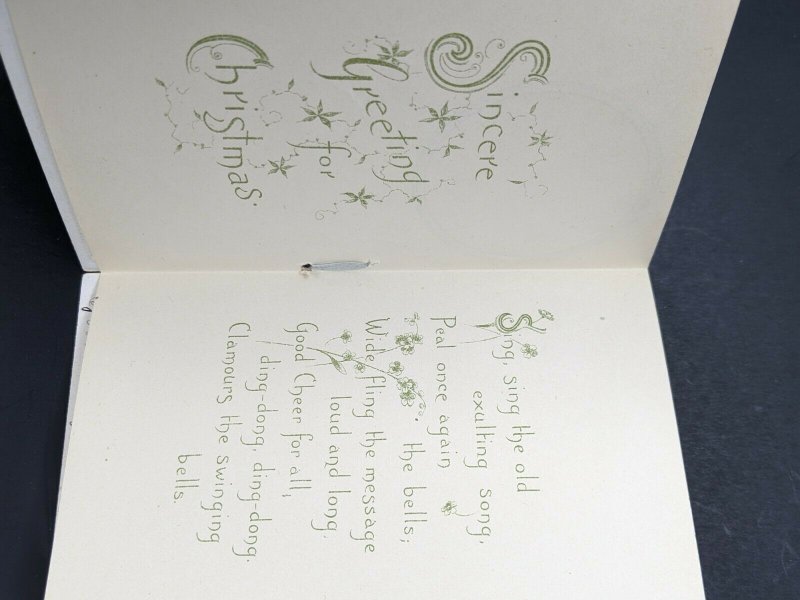 Sincere
Greeting
for
Christmas.
Sing, sing the old
exulting song,
Peal once again the bells;
Wide fling the message
loud and long,
Good Cheer for all,
ding-dong, ding-dong.
Clamours the swinging
bells.